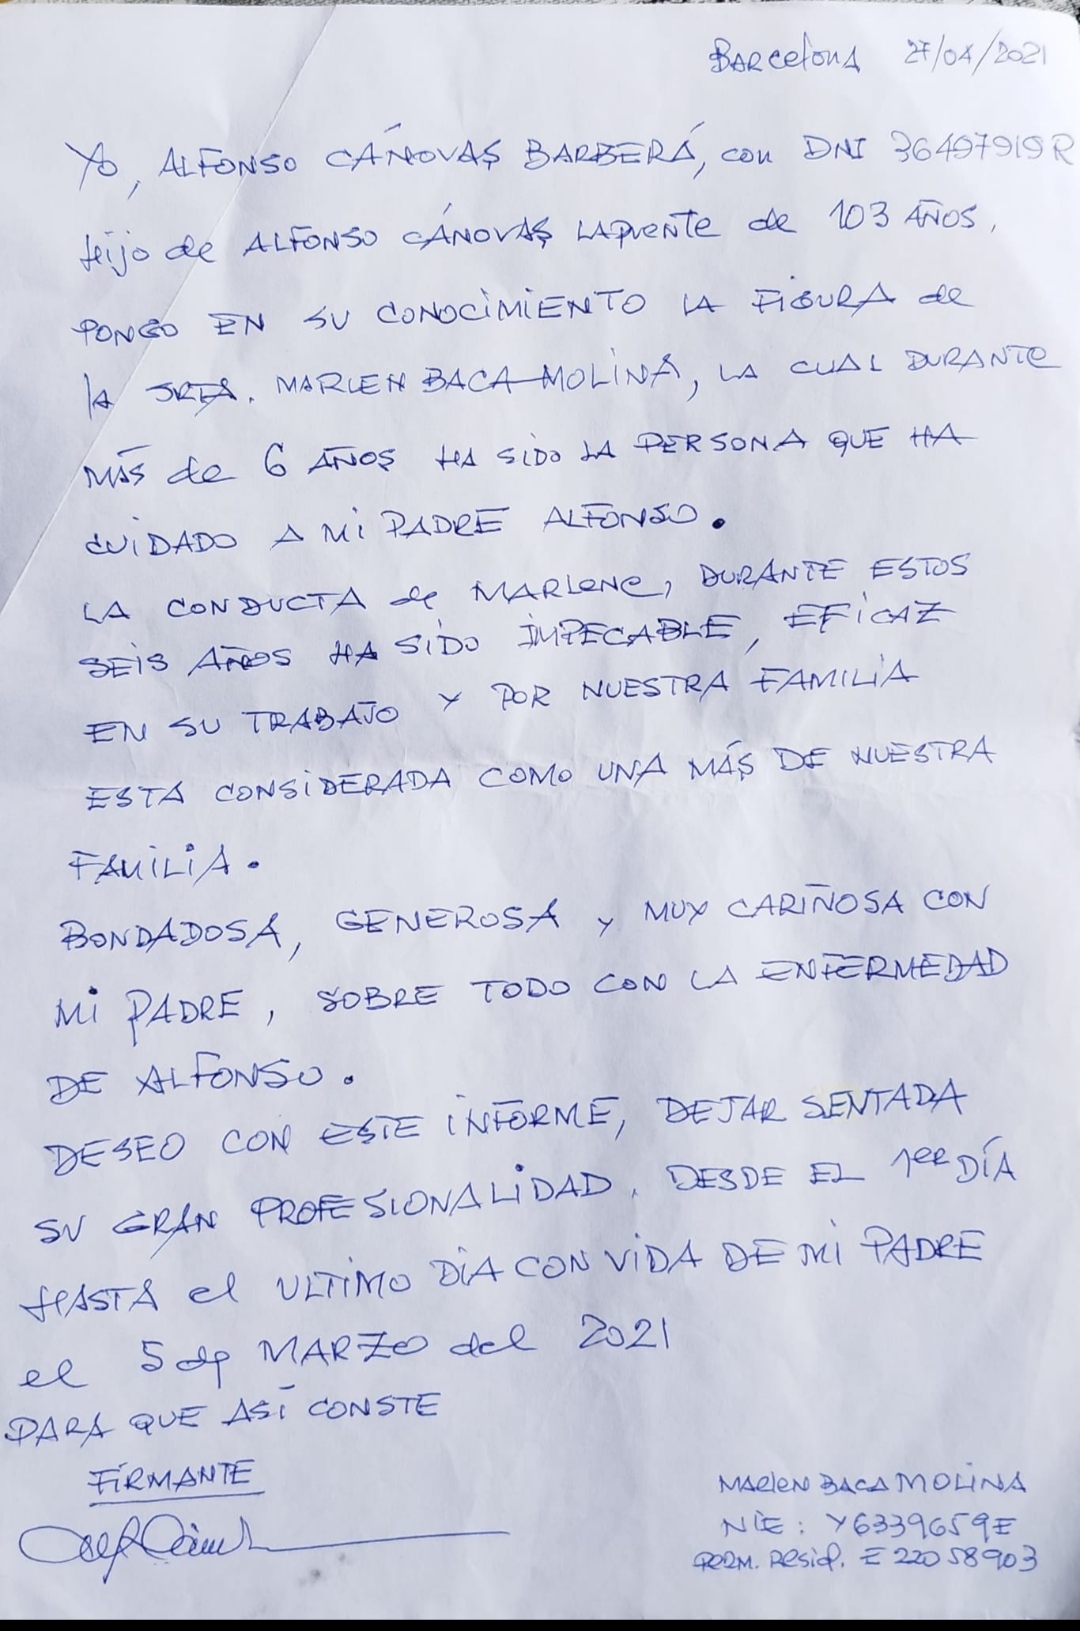 BARCELONA 27/04/2021
Yo, ALFONSO CÁNOVAS BARBERÁ, con DNI 36497919R
Hijo de ALFONSO CÁNOVAS LAPUENTE de 103 AÑOS,
PONGO EN SU CONOCIMIENTO LA FIGURA de
la SRTA. MARLEN BACA MOLINA, LA CUAL DURANTE
MÁS de 6 AÑOS HA SIDO LA PERSONA QUE HA
CUIDADO A MI PADRE ALFONSO.
LA CONDUCTA de MARLENE, DURANTE ESTOS
SEIS AÑOS HA SIDO IMPECABLE, EFICAZ
EN SU TRABAJO Y POR NUESTRA FAMILIA
ESTA CONSIDERADA COMO UNA MÁS DE NUESTRA
FAMILIA.
BONDADOSA, GENEROSA y MUY CARIÑOSA CON
MI PADRE, SOBRE TODO CON LA ENFERMEDAD
DE ALFONSO.
DESEO CON ESTE INFORME, DEJAR SENTADA
SU GRAN PROFESIONALIDAD, DESDE EL 1er DÍA
HASTA el ULTIMO DÍA CON VIDA DE MI PADRE
el 5 de MARZO del 2021
PARA QUE ASÍ CONSTE
FIRMANTE
MARLEN BACA MOLINA
NIE: Y6339659E
PERM. RESID. E22058903